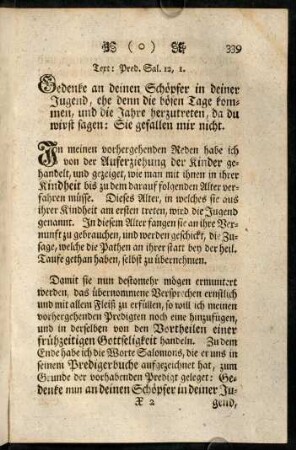 ( o ) 339
Text: Pred. Sal. 12, 1.
Gedenke an deinen Schöpfer in deiner
Jugend, ehe denn die bösen Tage kom-
men, und die Jahre herzutreten, da du
wirst sagen: Sie gefallen mir nicht.
In meinen vorhergehenden Reden habe ich
von der Auferziehung der Kinder ge-
handelt, und gezeiget, wie man mit ihnen in ihrer
Kindheit bis zu dem darauf folgenden Alter ver-
fahren müsse. Dieses Alter, in welches sie aus
ihrer Kindheit am ersten treten, wird die Jugend
genannt. In diesem Alter fangen sie an ihre Ver-
nunft zu gebrauchen, und werden geschickt, die Zu-
sage, welche die Pathen an ihrer statt bey der heil.
Taufe gethan haben, selbst zu übernehmen.
Damit sie nun destomehr mögen ermuntert
werden, das übernommene Versprechen ernstlich
und mit allem Fleiß zu erfüllen, so will ich meinen
vorhergehenden Predigten noch eine hinzufügen,
und in derselben von den Vortheilen einer
frühzeitigen Gottseligkeit handeln. Zu dem
Ende habe ich die Worte Salomons, die er uns in
seinem Predigerbuche aufgezeichnet hat, zum
Grunde der vorhabenden Predigt geleget: Ge-
denke nun an deinen Schöpfer in deiner Ju-
X 2 gend,